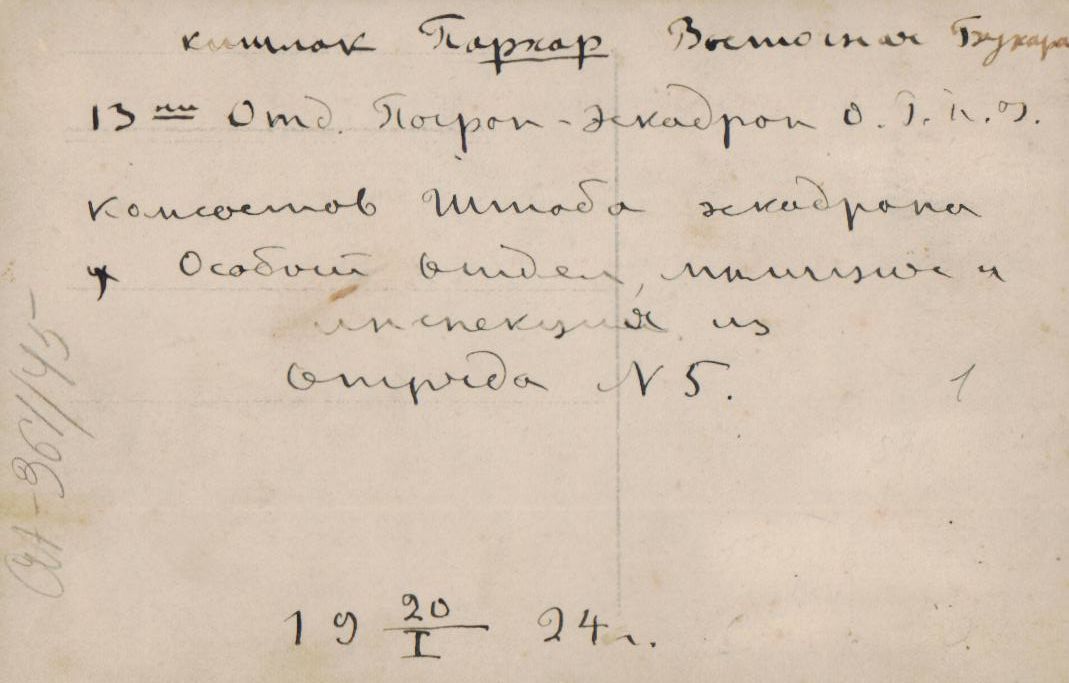 кишлак Пархар Восточная Бухара
13ый Отд. Погран-эскадрон О.Г.П.У.
комсостав Штаба эскадрона
и Особый отдел, милиция и
инспекция из
отряда N 5.
1
19 20/I 24 г.
361/45